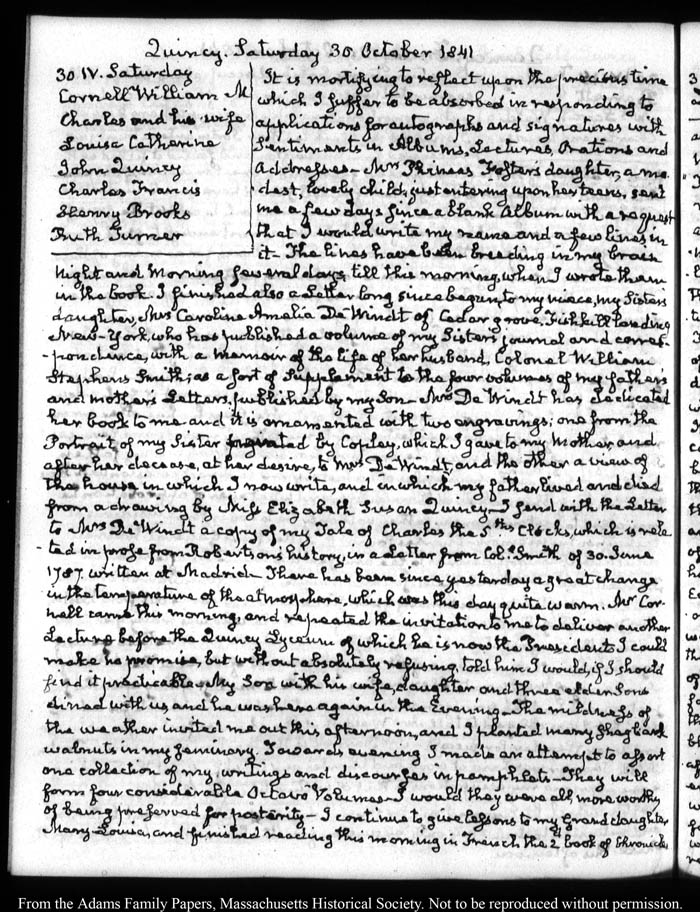 Quincy. Saturday 30 October 1841
30 IV. Saturday
Cornell William M
Charles and his wife
Louisa Catherine
John Quincy
Charles Francis
Henry Brooks
Ruth Turner
It is mortifying to reflect upon the precious time
which I suffer to be absorbed in responding to
applications for autographs and signatures with
Sentiments in Albums, Lectures, Orations and
Addresses— Mrs Phineas Foster's daughter, a mo
dest, lovely child, just entering upon her teens, sent
me a few days since a blank Album with a request
that I would write my name and a few lines in
it— The lines have been breeding in my brain
Night and Morning several days, till this morning, when I wrote them
in the book. I finished also a Letter long since begun, to my niece, my Sisters
daughter, Mrs Caroline Amelia De Windt of Cedar grove, Fishkill Landing
New-York, who has published a volume of my Sisters journal and corres-
-pondence, with a Memoir of the life of her husband, Colonel William
Stephens Smith; as a sort of Supplement to the four volumes of my father's
and mothers Letters, published by my Son— Mrs De Windt has dedicated
her book to me and it is ornamented with two engravings; one from the
Portrait of my Sister by Copley, which I gave to my Mother, and
after her decease, at her desire, to Mrs De Windt, and the other a view of
the house in which I now write, and in which my father lived and died
from a drawing by Miss Elizabeth Susan Quincy— I send with the Letter
to Mrs De Windt a copy of my Tale of Charles the 5ths Clocks, which is rela
-ted in prose from Robertsons history, in a Letter from Col. Smith of 30. June
1787. written at Madrid— There has been since yesterday a great change
in the temperature of the atmosphere, which was this day quite warm. Mr Cor-
nell came this morning, and repeated the invitation to me to deliver another
Lecture before the Quincy Lyceum of which he is now the President. I could
make no promise, but without absolutely refusing, told him I would, if I should
find it practicable. My Son with his wife, daughter and three elder Sons
dined with us and he was here again in the Evening— The mildness of
the weather invited me out this afternoon, and I planted many shagbark
walnuts in my seminary. Towards evening I made an attempt to assort
one collection of my writings and discourses in pamphlets— They will
form four considerable Octavo Volumes— I would they were all more worthy
of being preserved for posterity— I continue to give lessons to my Grand daughter
Mary Louisa, and finished reading this morning in French the 2d book of Chronicles
From the Adams Family Papers, Massachusetts Historical Society. Not to be reproduced without permission.